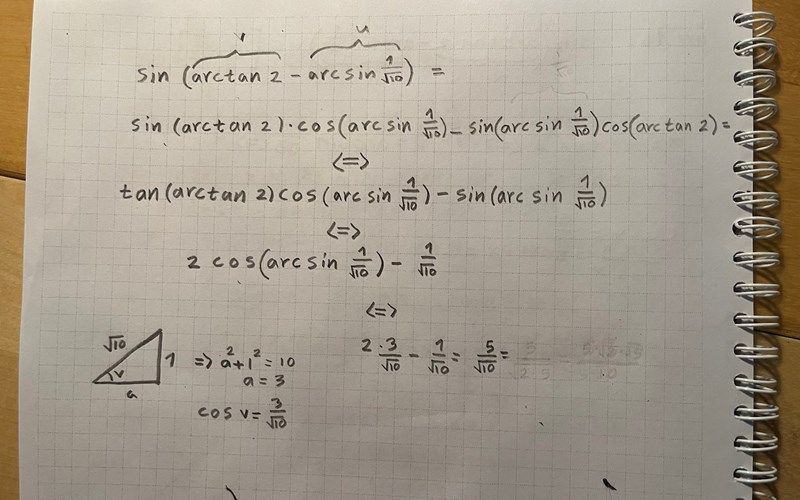 v u
sin (arctan 2 - arcsin 1/√10) =
sin (arctan 2)·cos(arcsin 1/√10) - sin(arcsin 1/√10)cos(arctan 2) =
<=>
tan(arctan 2)cos(arcsin 1/√10) - sin(arcsin 1/√10)
<=>
2 cos(arcsin 1/√10) - 1/√10
<=>
√10 1 v a
=> a²+1²=10
a=3
cos v = 3/√10
2·3/√10 - 1/√10 = 5/√10 =